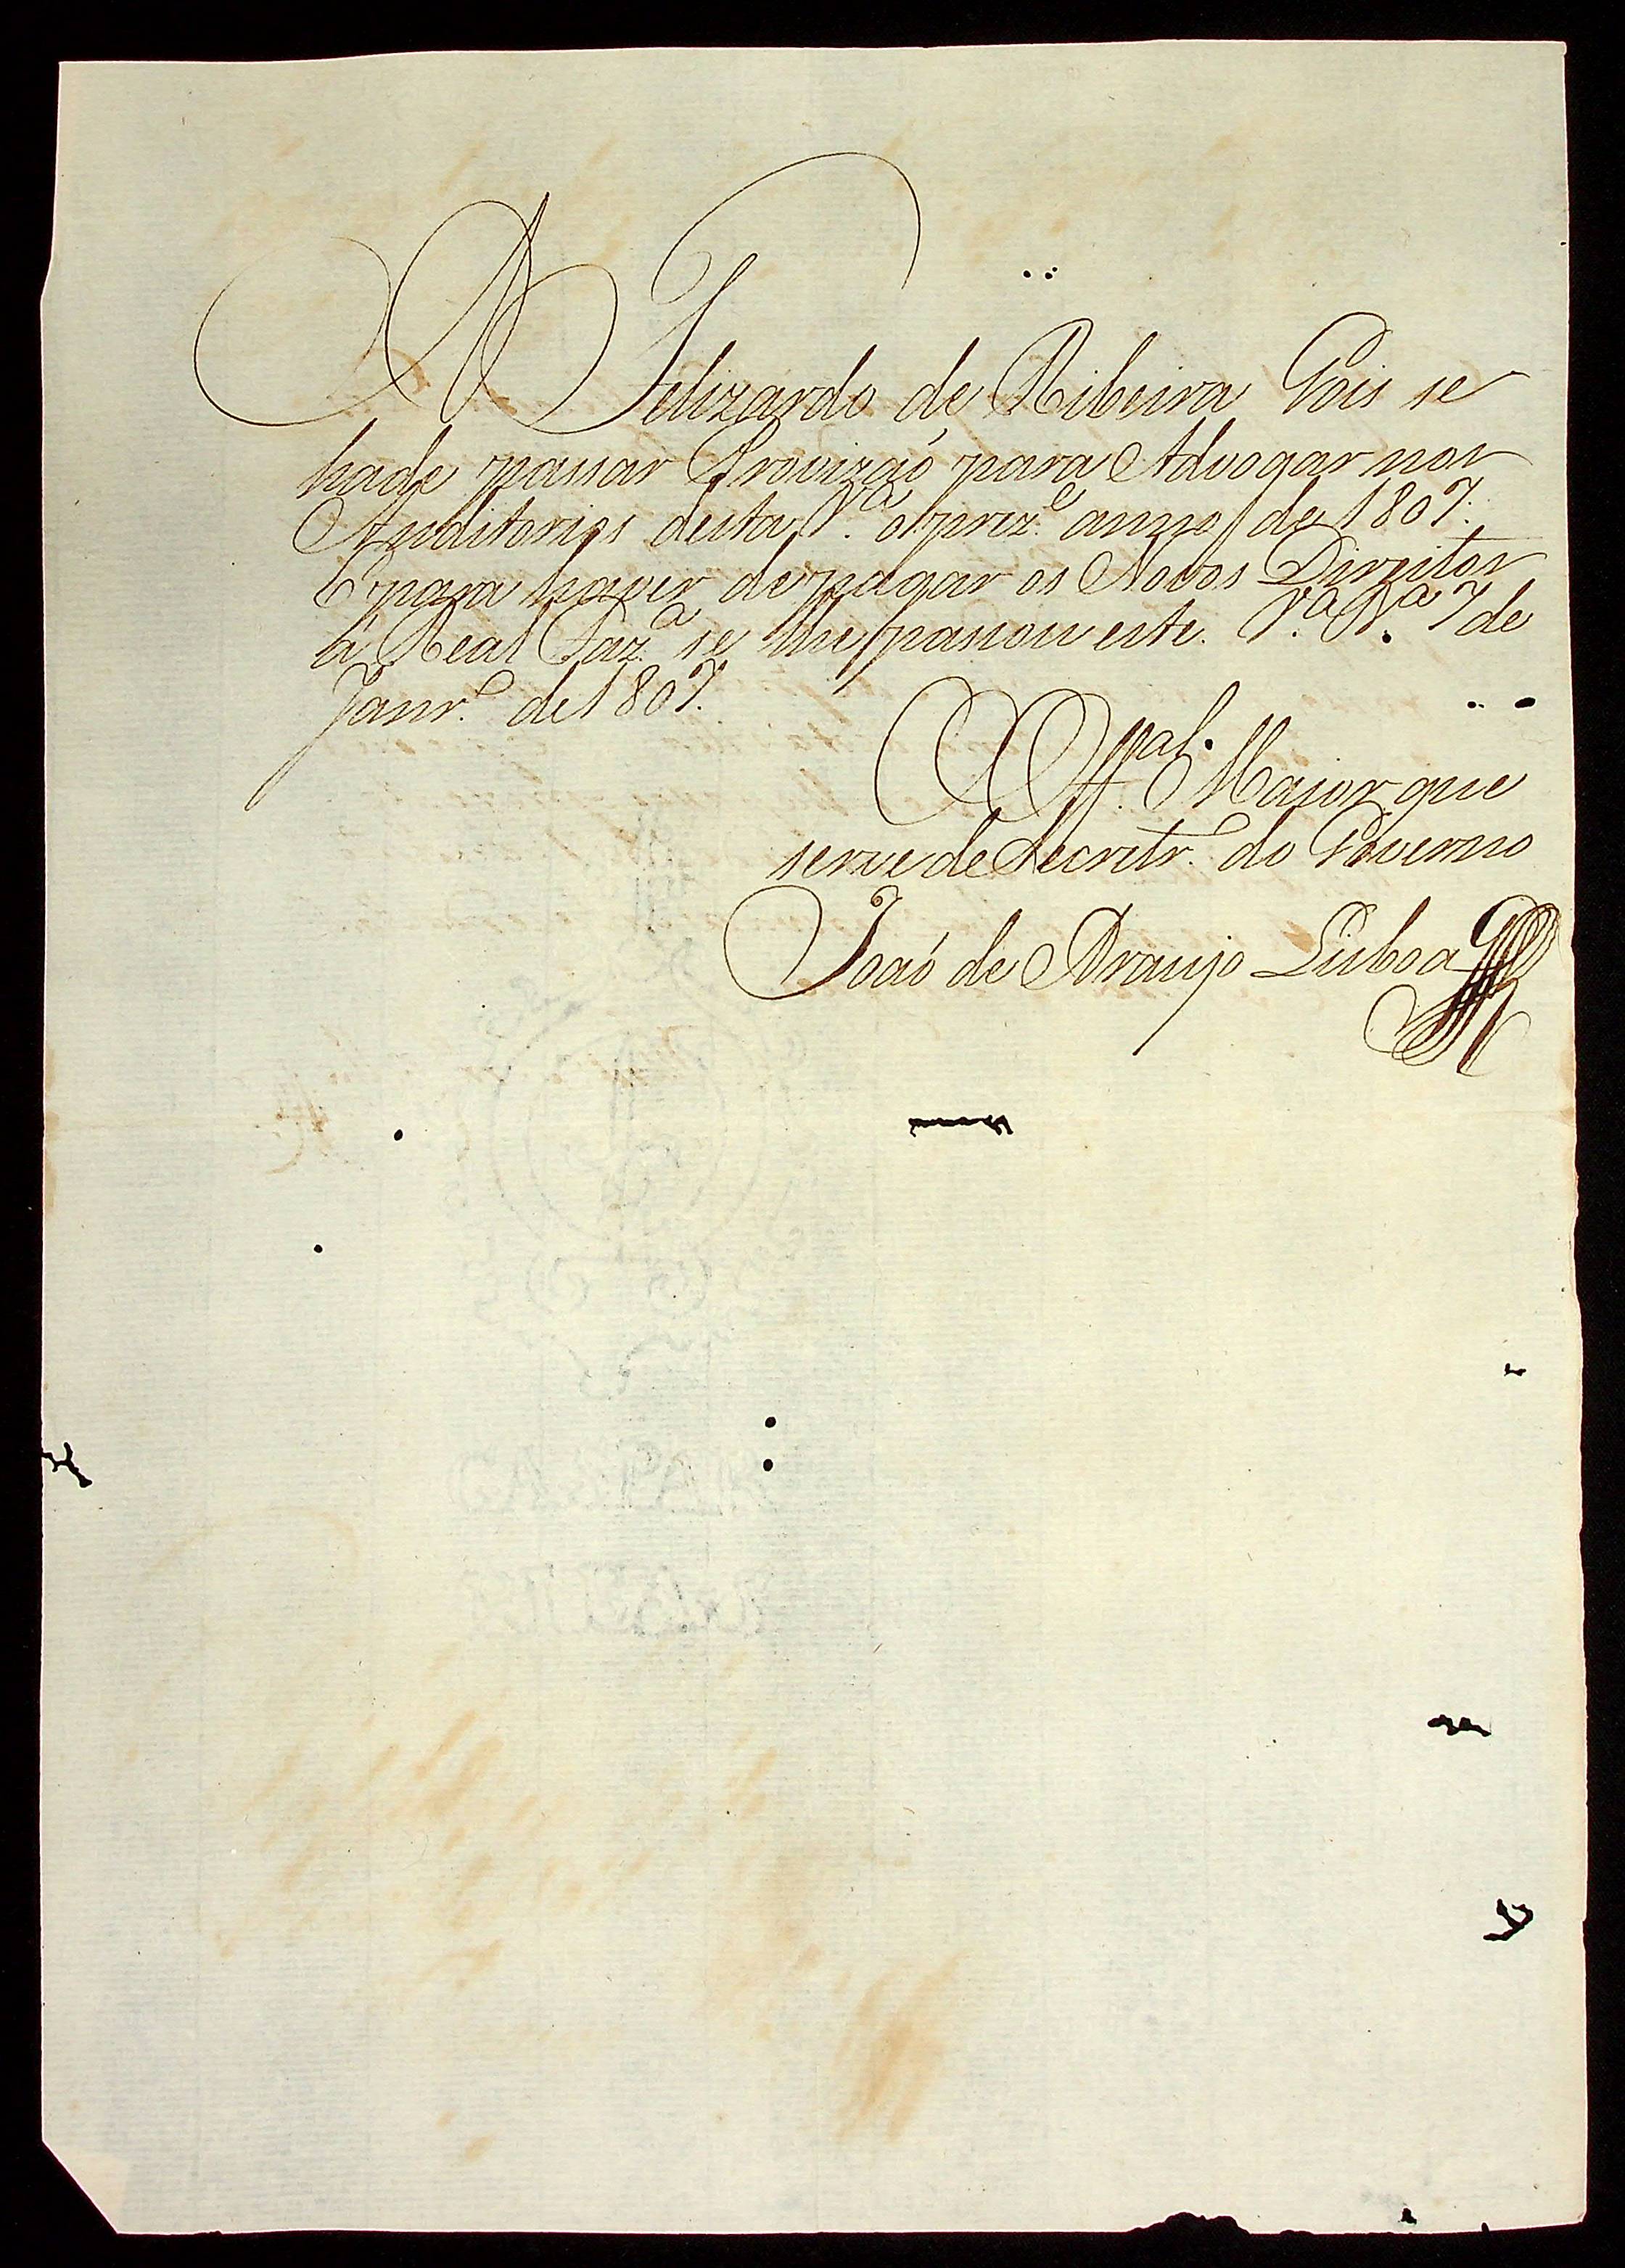 A Felizardo de Ribeira Gois se
hade passar Provizaó para Advogar nos
Auditorios desta V.ª o prez.e anno de 1807.
E para haver de pagar os Novos Direitos
á Real Faz.ª se lhe passou este. V.ª R.ª 7 de
Janr.º de 1807.
O Off.al Maior que
serve de Secretr.º do Governo
Joaó de Araujo Lisboa